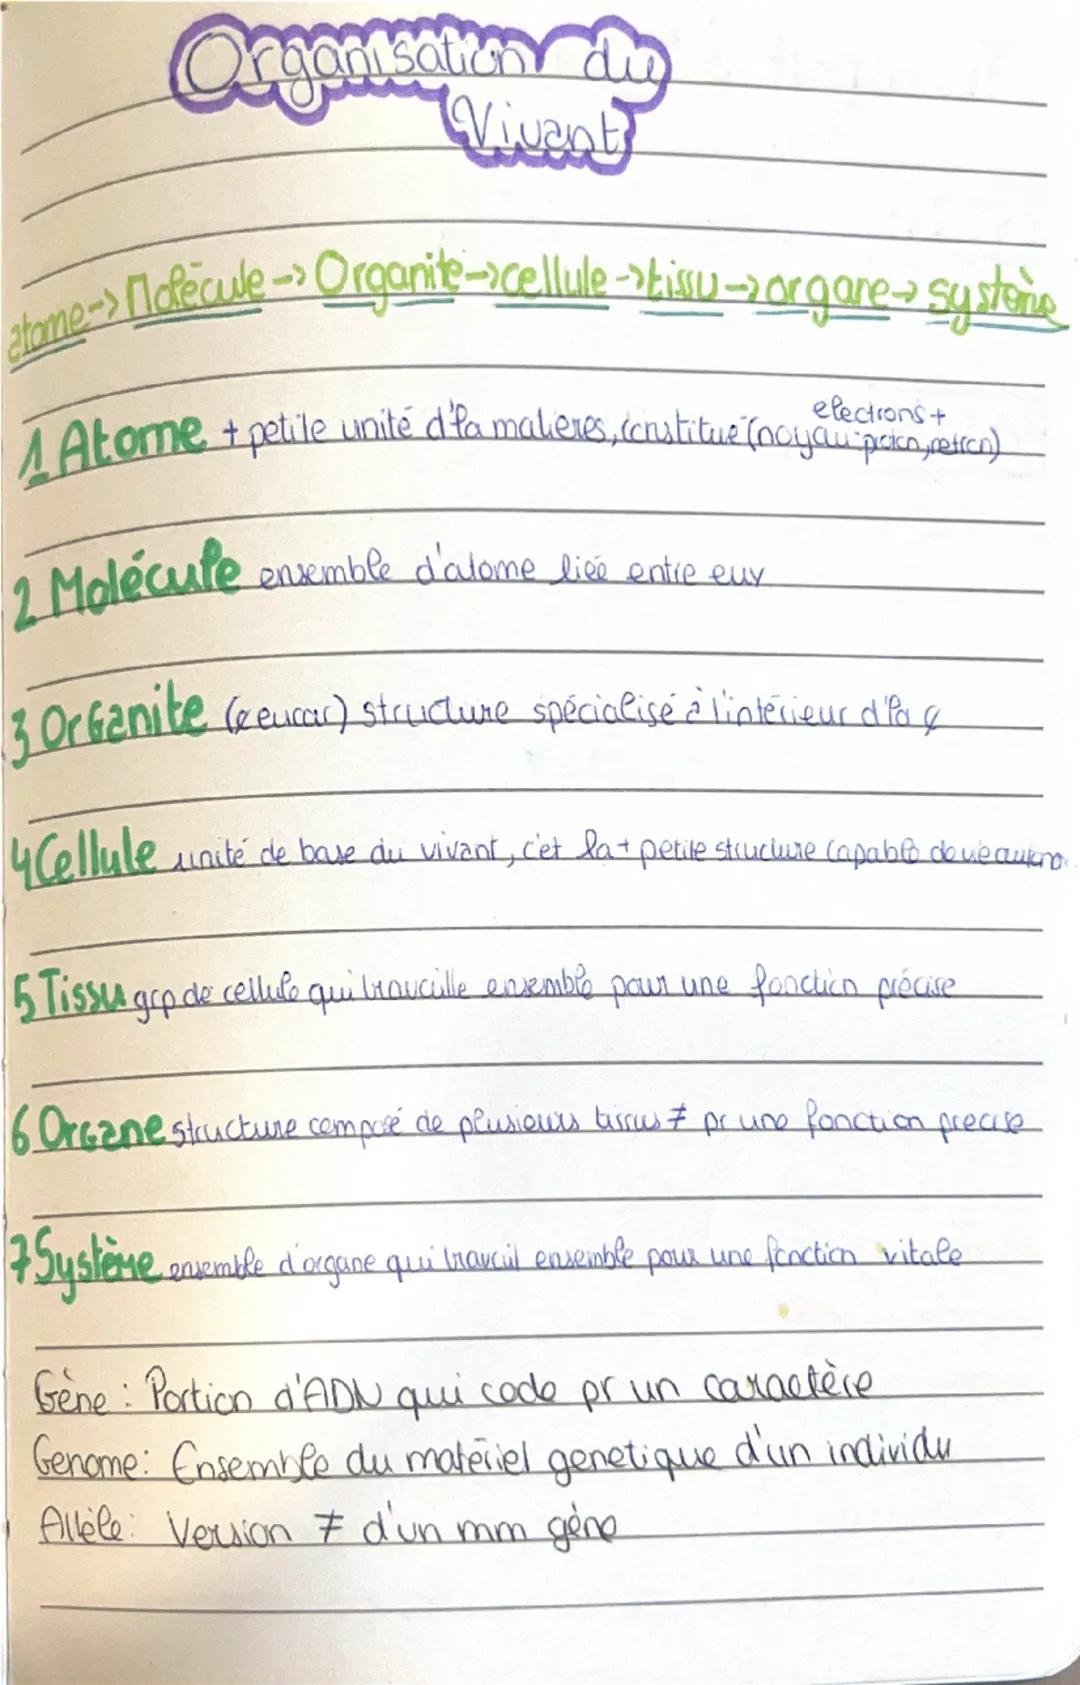 Organisation du
Vivant
atome -> Molécule -> Organite -> cellule -> tissu -> organe -> système
1 Atome + petite unité d'la matieres, constitué (noyau: proton, netron) electrons +
2 Molécule ensemble d'atome liée entre eux
3 Organite ( eucar) structure spécialisé à l'intérieur d'la ¢
4 Cellule unité de base du vivant, c'et la + petite structure capable de vie autono
5 Tissu grp de cellule qui travaille ensemble pour une fonction précise
6 Organe structure composé de plusieurs tissus ≠ pr une fonction precise
7 Système ensemble d'organe qui travail ensemble pour une fonction vitale
Gène : Portion d'ADN qui code pr un caractère
Genome: Ensemble du matériel genetique d'un individu
Allèle: Version ≠ d'un mm gène